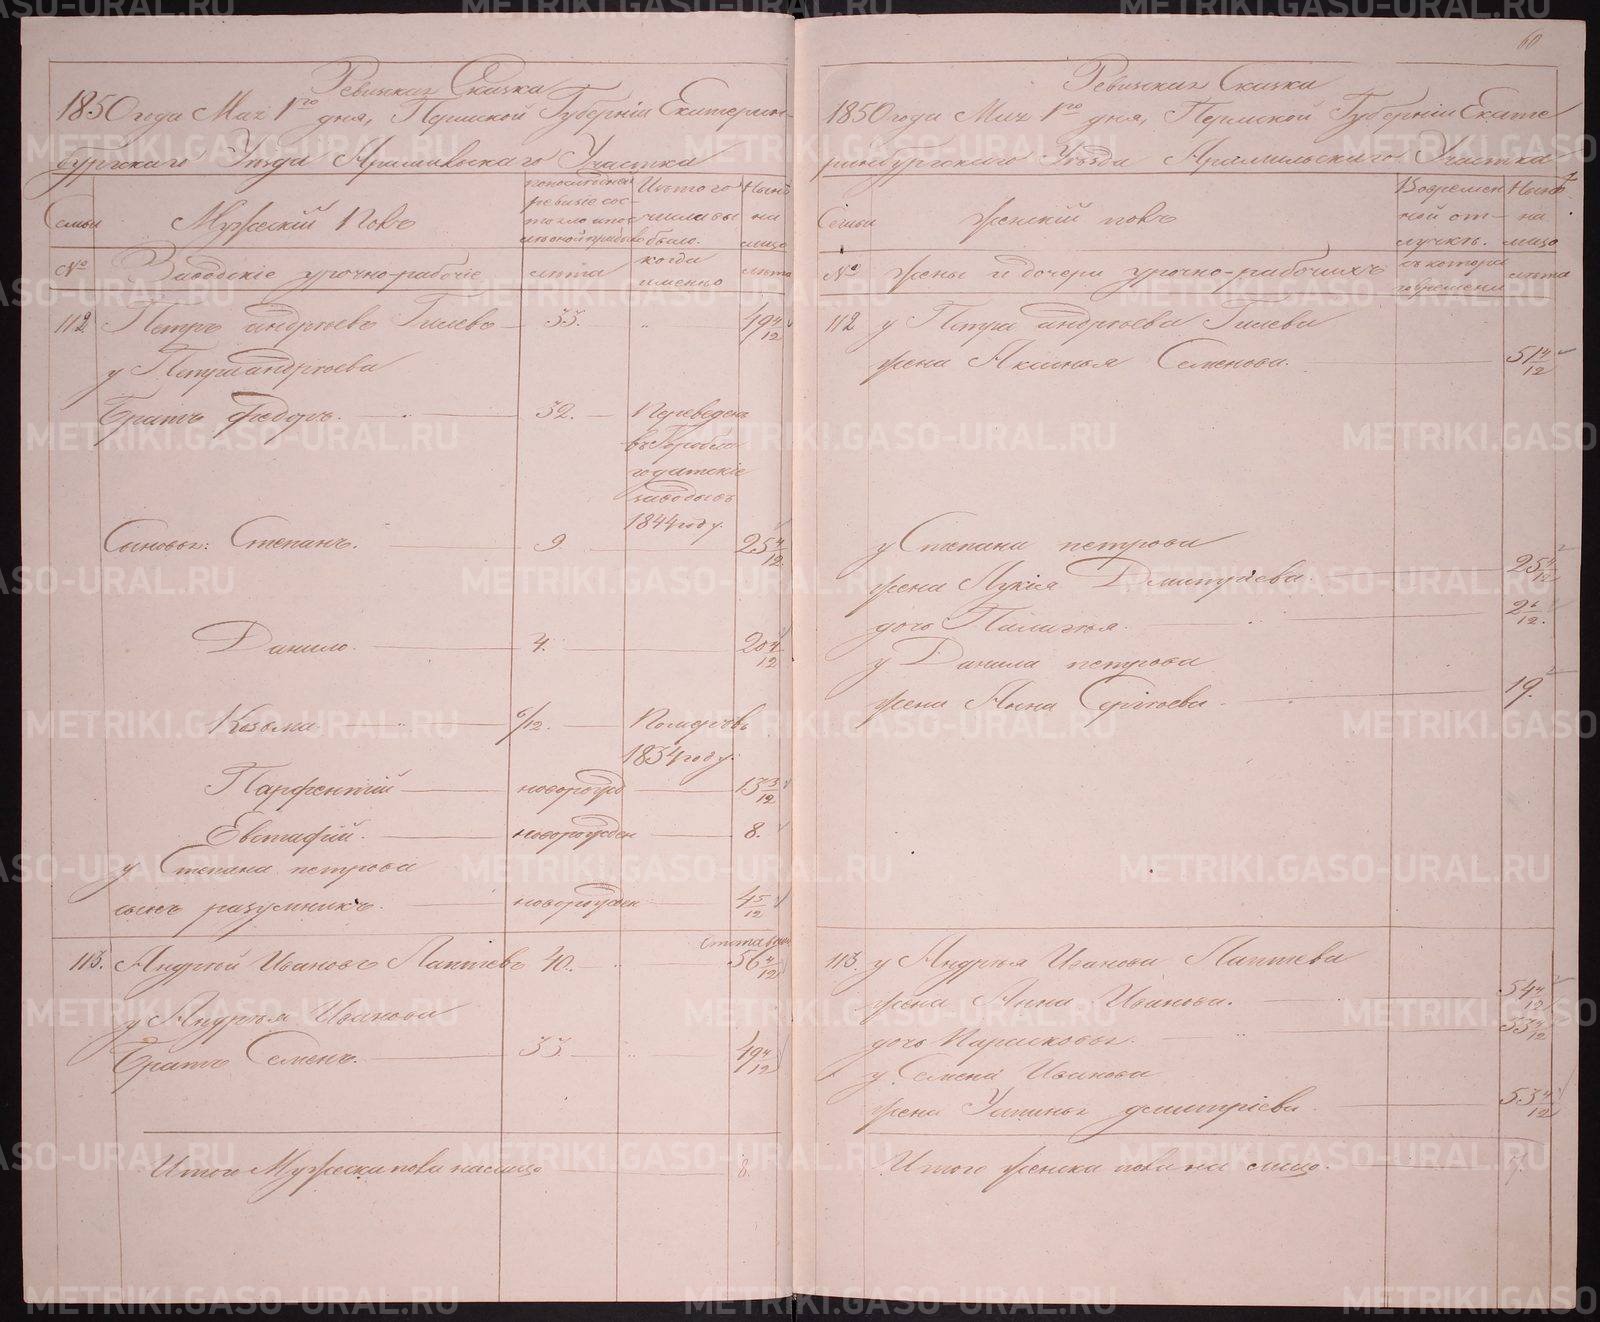 Ревизская Сказка
1850 года Мая 1го дня, Пермской Губерніи Екатерин-
бургскаго Уѣзда Арамильскаго Участка
Семьи
Мужескій Полъ
По последней ревизіе сос-
тояло и пос-
ле оной прибыло
Изъ того числа вы
было.
Ныне на
лицо
№
Заводскіе урочно-рабочіе
лѣта
когда именно
лѣта
112 Петръ андрѣевъ Гилевъ 33. 49 4/12
у Петра андрѣева
Братъ Ѳедоръ. 32. Переведенъ
въ Горобла
годатскіе
заводы въ
1844 году.
Сыновья: Степанъ. 9 25 4/12
Данило. 4. 20 4/12
Козьма 6/12. Помер
1834 году.
Парфентій новорожд 13 3/12
Евстафій. новорожден 8.
у Степана петрова
сынъ разумникъ. новорожден 4 5/12
113. Андрей Ивановъ Лаптевъ 40. 56 4/12
у Андрея Иванова
Братъ Семенъ. 33 49 4/12
Итого Мужеска пола на лицо 8.
60
Ревизская Сказка
1850 года Мая 1го дня, Пермской Губерніи Екате
ринбургскаго Уѣзда Арамильскаго Участка
Семьи
Женскій полъ
Во времен
ной от-
лучкѣ.
Ныне
на
лицо
№
жены и дочери урочно-рабочихъ
съ котора
го времени
лѣта
112 у Петра андрѣева Гилева
жена Аксинья Семенова. 51 4/12
у Степана петрова
жена Лукія Дмитріева. 25 4/12
дочь Пилагѣя. 2 6/12.
у Данила петрова
жена Анна Сергѣева 19.
113. у Андрѣя Иванова Лаптева
жена Анна Иванова. 54 4/12
дочь Парасковья. 33 4/12
у Семена Иванова
жена Устинья дмитріева. 53 4/12
Итого женска пола на лицо. 7.
METRIKI.GASO-URAL.RU